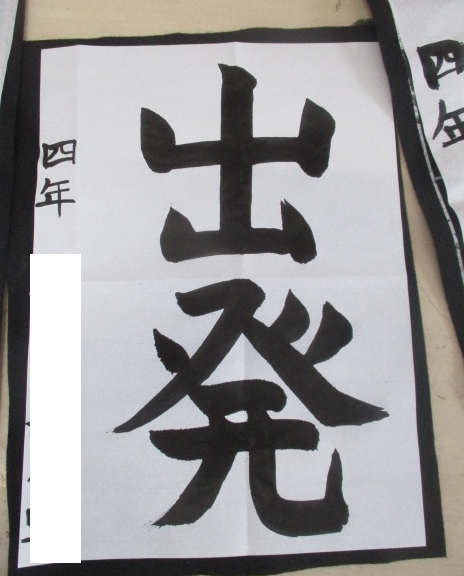 出発
四年
四年